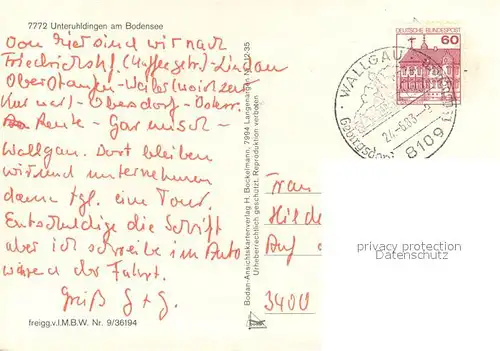 7772 Unteruhldingen am Bodensee
Von hier sind wir nach
Friedrichshf. (Kaffeegetr.) - Lindau
Oberstaufen - Weiler
- Obersdorf - Österr.
Reute - Garmisch -
Wallgau. Dort bleiben
wir und unternehmen
dann tgl. eine Tour.
Entschuldige die Schrift
aber ich schreibe im Auto
während der Fahrt.
Gruß G + G.
freigg.v.I.M.B.W. Nr. 9/36194
Bodan-Ansichtskartenverlag H. Bockelmann, 7994 Langenargen Nr. 12-35
Urheberrechtlich geschützt. Reproduktion verboten
DEUTSCHE BUNDESPOST
60
WALLGAU
Gebirgsdorf
8109
Frau
Hilde
Auf d
3400
privacy protection
Datenschutz